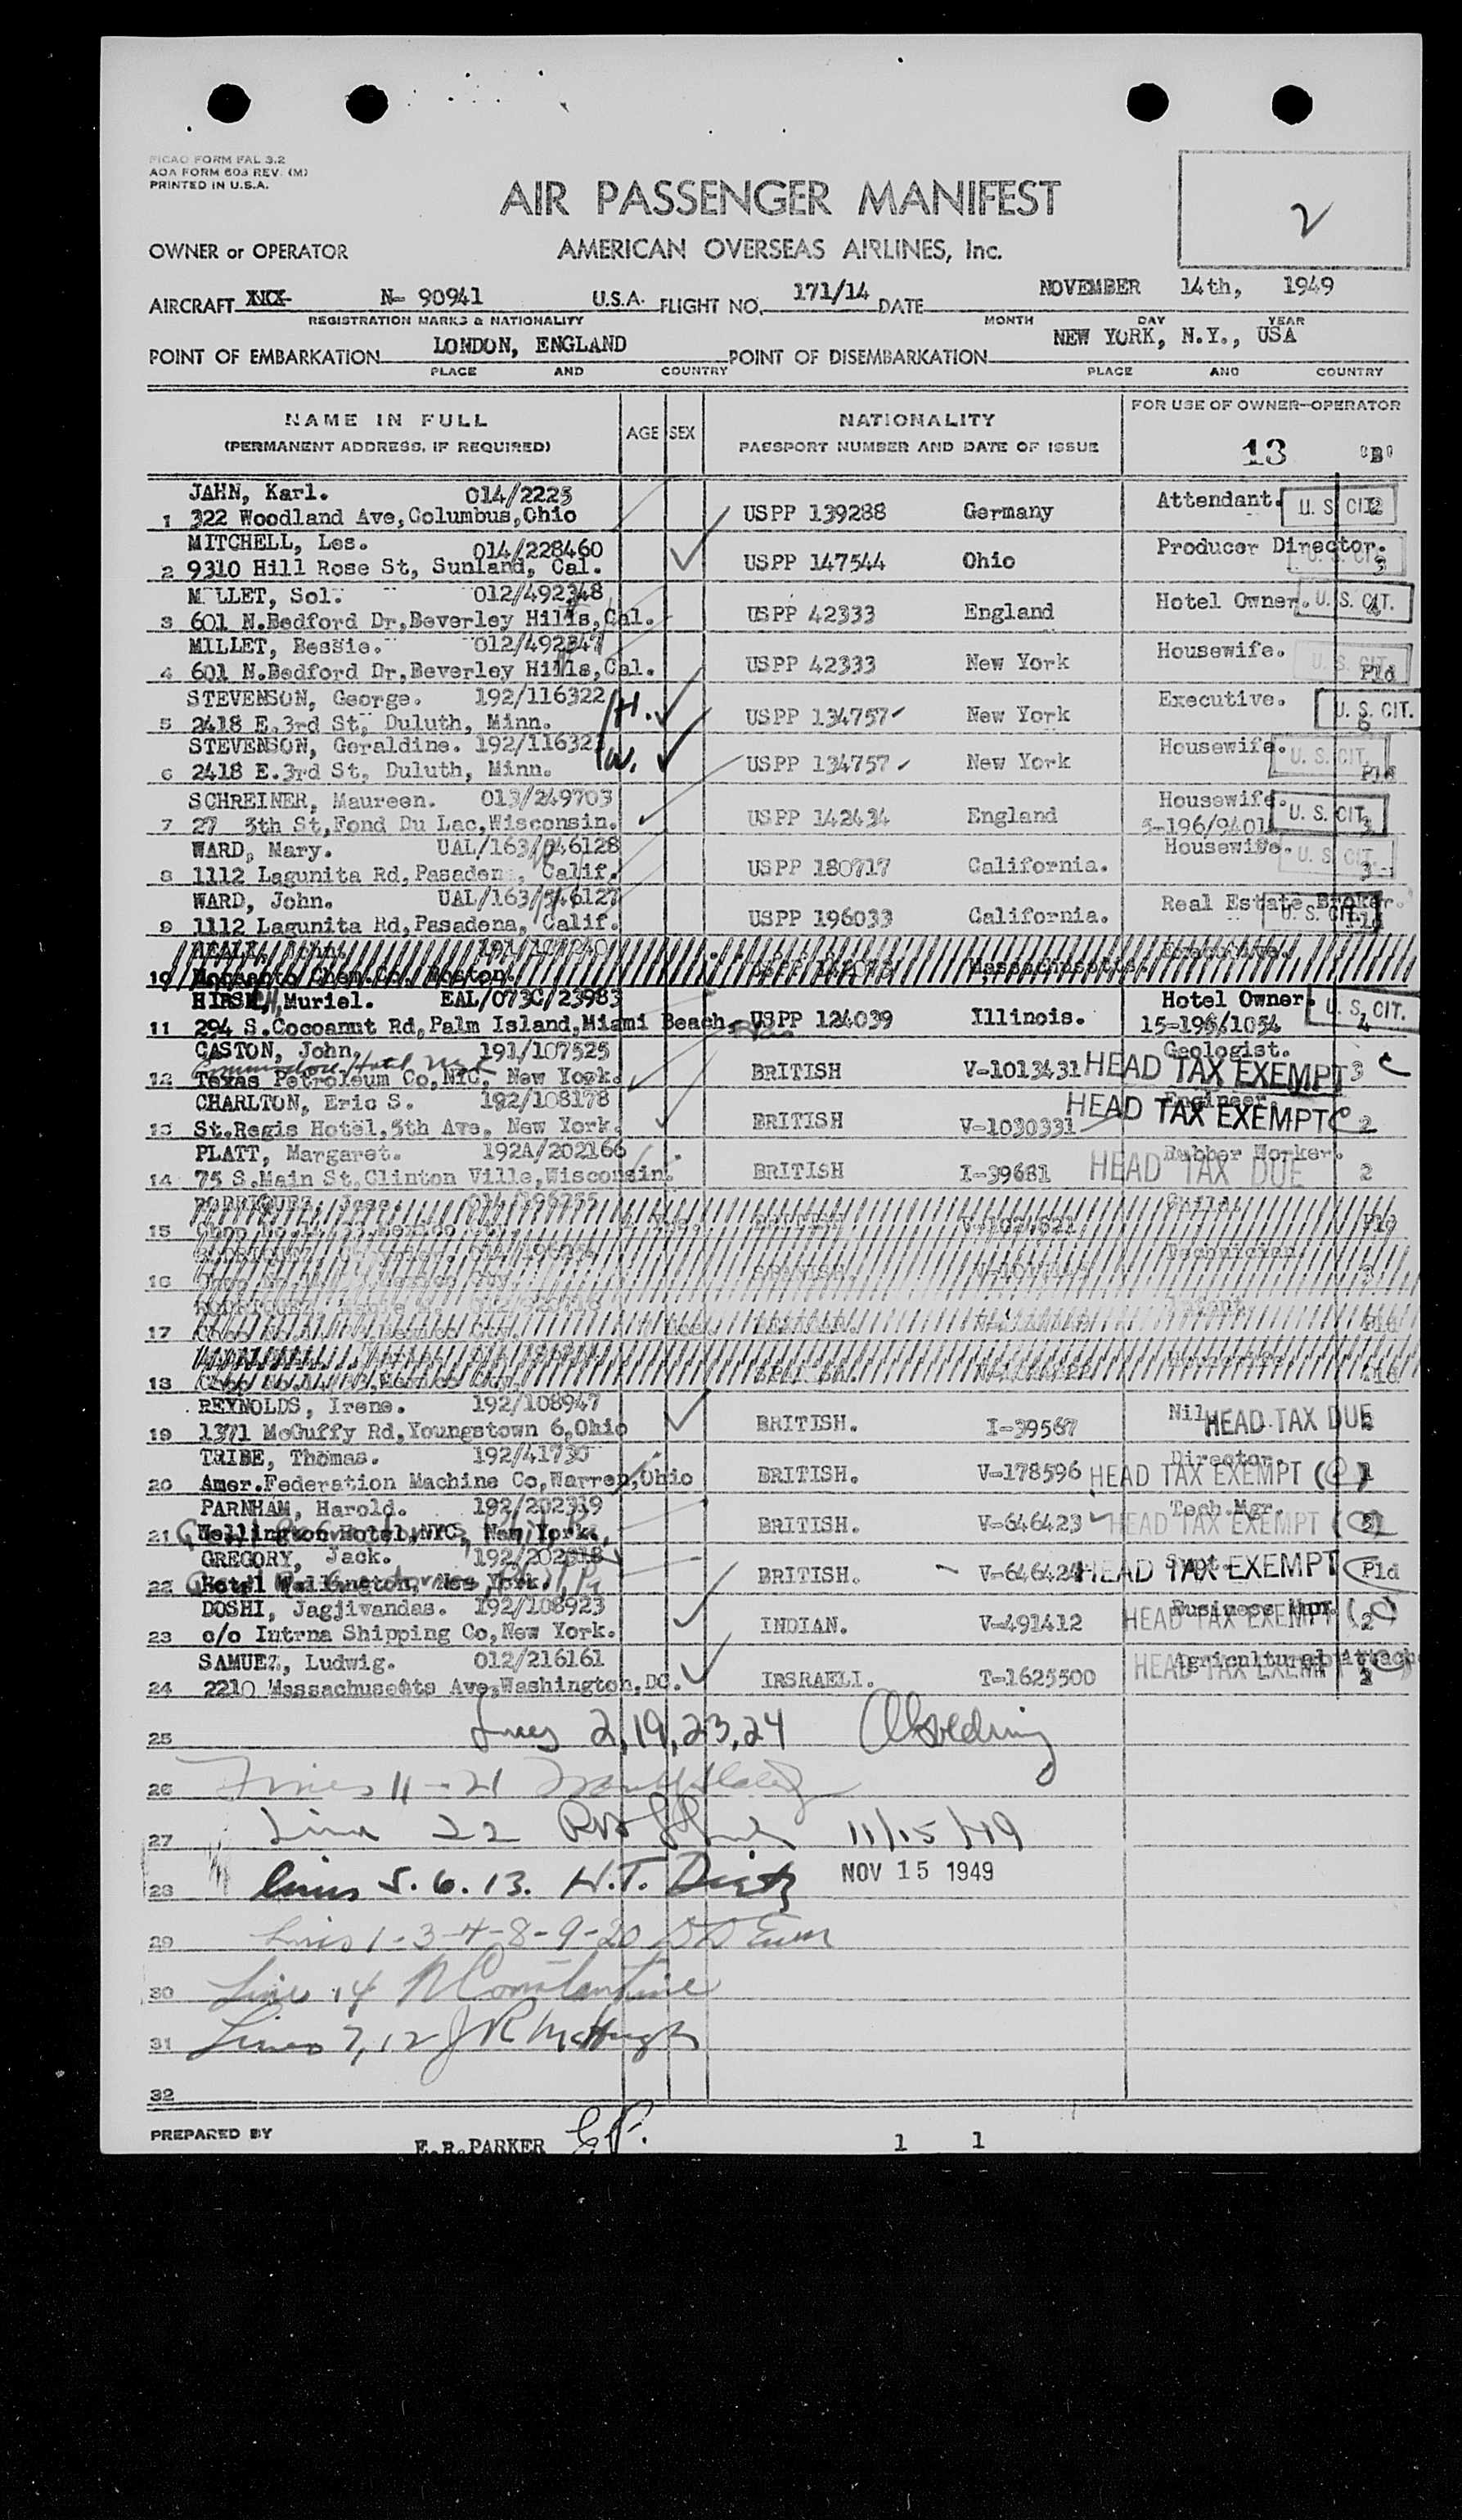 FICAO FORM FAL 3.2
AOA FORM 603 REV. (M)
PRINTED IN U.S.A.
AIR PASSENGER MANIFEST
2
OWNER or OPERATOR AMERICAN OVERSEAS AIRLINES, Inc.
AIRCRAFT XXX N- 90941 U.S.A. FLIGHT NO. 171/14 DATE NOVEMBER 14th, 1949
REGISTRATION MARKS & NATIONALITY MONTH DAY YEAR
POINT OF EMBARKATION LONDON, ENGLAND POINT OF DISEMBARKATION NEW YORK, N.Y., USA
PLACE AND COUNTRY PLACE AND COUNTRY
NAME IN FULL AGE SEX NATIONALITY FOR USE OF OWNER-OPERATOR
(PERMANENT ADDRESS, IF REQUIRED) PASSPORT NUMBER AND DATE OF ISSUE 13 "B"
JAHN, Karl. 014/2225 Attendant. U. S. CIT.
1 322 Woodland Ave,Columbus,Ohio USPP 139288 Germany
MITCHELL, Les. 014/228460 Producer Director.
2 9310 Hill Rose St, Sunland, Cal. USPP 147544 Ohio
M LLET, Sol. 012/492348 Hotel Owner. U. S. CIT.
3 601 N.Bedford Dr,Beverley Hills,Cal. USPP 42333 England
MILLET, Bessie. 012/492347 Housewife. U. S. CIT.
4 601 N.Bedford Dr,Beverley Hills,Cal. USPP 42333 New York Pld
STEVENSON, George. 192/116322 H. Executive. U. S. CIT.
5 2418 E.3rd St, Duluth, Minn. USPP 134757 New York
STEVENSON, Geraldine. 192/11632 W. Housewife. U. S. CIT.
6 2418 E.3rd St, Duluth, Minn. USPP 134757 New York
SCHREINER, Maureen. 013/249703 Housewife. U. S. CIT.
7 27 5th St,Fond Du Lac,Wisconsin. USPP 142434 England 5-196/9401
WARD, Mary. UAL/163/046128 Housewife. U. S. CIT.
8 1112 Lagunita Rd,Pasadena, Calif. USPP 180717 California. 3
WARD, John. UAL/163/546127 Real Estate Broker.
9 1112 Lagunita Rd,Pasadena, Calif. USPP 196033 California. U. S. CIT.
10 Monsanto Chem.Co. Boston. Massachusetts.
HIRSH, Muriel. EAL/073C/23983 Hotel Owner. U. S. CIT.
11 294 S.Cocoanut Rd,Palm Island,Miami Beach, USPP 124039 Illinois. 15-196/1054 4
CASTON, John. 191/107525 Geologist.
Commodore Hotel
12 Texas Petroleum Co,NYC, New York. BRITISH V-1013431 HEAD TAX EXEMPT 3 C
CHARLTON, Eric S. 192/108178 Engineer.
13 St.Regis Hotel,5th Ave, New York. BRITISH V-1030331 HEAD TAX EXEMPT C 2
PLATT, Margaret. 192A/202166 Rubber Worker.
14 75 S.Main St,Clinton Ville,Wisconsin. BRITISH I-39681 HEAD TAX DUE 2
RODRIQUEZ, Jose. 014/196255 Child.
15
Technician.
16
17
18
REYNOLDS, Irene. 192/108947 Nil
19 1371 McGuffy Rd,Youngstown 6,Ohio BRITISH. I-39567 HEAD TAX DUE
TRIBE, Thomas. 192/41730 Director.
20 Amer.Federation Machine Co,Warren,Ohio BRITISH. V-178596 HEAD TAX EXEMPT (C) 1
PARNHAM, Harold. 192/202319 Tech.Mgr.
21 Wellington Hotel,NYC, New York. BRITISH. V-646423 HEAD TAX EXEMPT
GREGORY, Jack. 192/202318
22 Hotel Wellington, New York. BRITISH. V-646424 HEAD TAX EXEMPT Pld
DOSHI, Jagjivandas. 192/108923 Business Man.
23 c/o Intrna Shipping Co,New York. INDIAN. V-491412 HEAD TAX EXEMPT (C) 2
SAMUEZ, Ludwig. 012/216161 Agricultural Attach
24 2210 Massachusetts Ave,Washington,DC. IRSRAELI. T-1625500 HEAD TAX EXEMPT
25 Lines 2,19,23,24
26 Lines 11-21
27 Line 22 11/15/49
28 Lines 5.6.13. H.T. Dietz NOV 15 1949
29 Lines 1-3-4-8-9-20
30 Line 14 N Constantine
31 Lines 7,12 J R McHugh
32
PREPARED BY E.R.PARKER E.P. 1 1